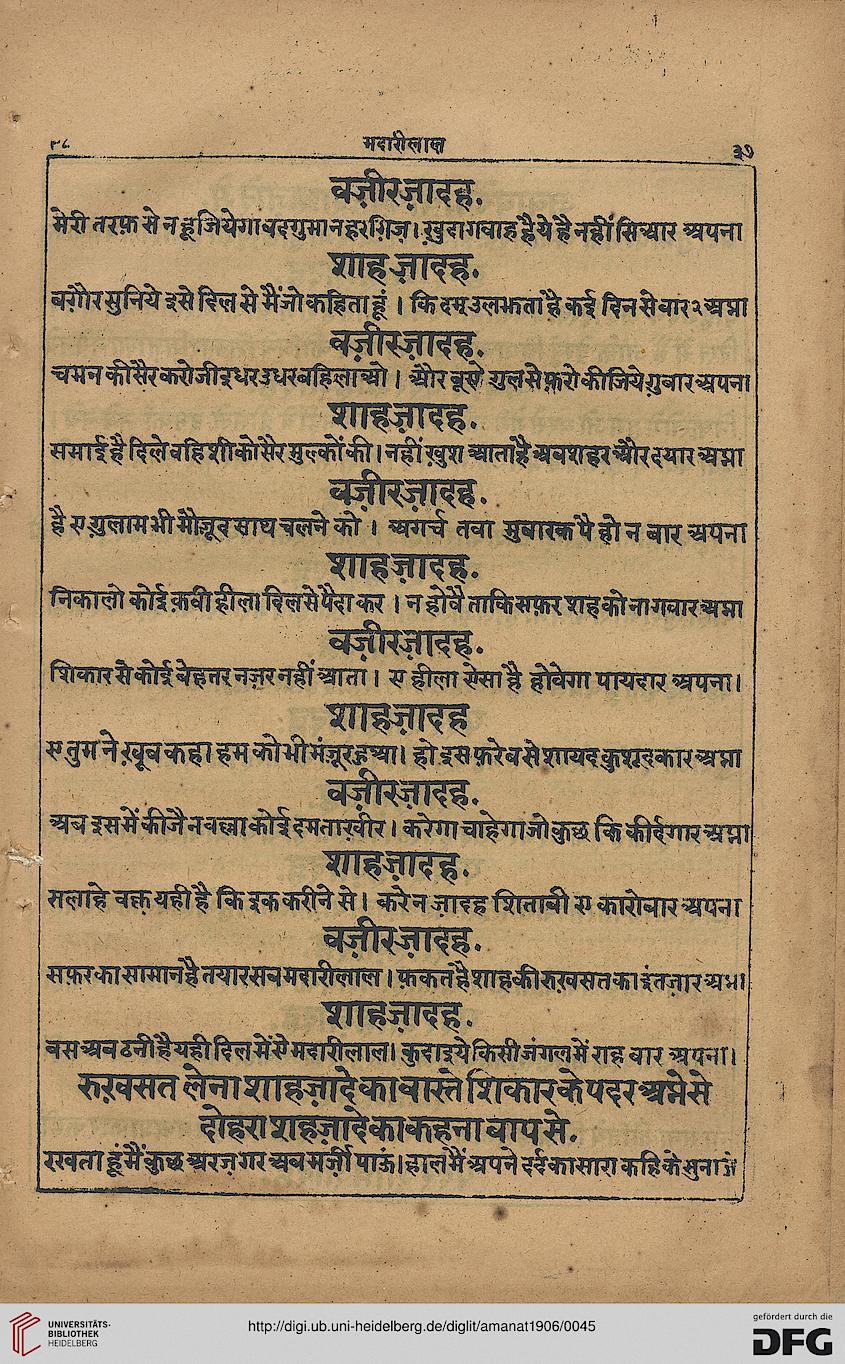 मदारीलाल ३७
वज़ीरज़ादह.
मेरी तरफ़ से न हूजियेगा बदगुमान हरगिज़। ख़ुदा गवाह है ये है नहीं सिआर अपना
शाहज़ादह.
बग़ौर सुनिये इसे दिल से मैं जो कहिता हूं । कि दम उलझता है कई दिन से बार२ अप्ना
वज़ीरज़ादह.
चमन की सैर करो जी इधर उधर बहिलाओ । और गुल से फ़रो कीजिये ग़ुबार अपना
शाहज़ादह.
समाई है दिले वहिशी को सैर मुल्कों की। नहीं ख़ुश आता है अब शहर और दयार अप्ना
वज़ीरज़ादह.
है ए ग़ुलाम भी मौजूद साथ चलने को । अगर्चे तबा मुबारक पै हो न बार अपना
शाहज़ादह.
निकालो कोई क़वी हीला दिल से पैदा कर । न होवै ताकि सफ़र शह को नागवार अप्ना
वज़ीरज़ादह.
शिकार से कोई बेहतर नज़र नहीं आता । ए हीला ऐसा है होवेगा पायदार अपना।
शाहज़ादह
ए तुम ने ख़ूब कहा हम को भी मंज़ूर हुआ। हो इस फ़रेब से शायद कुशूदकार अप्ना
वज़ीरज़ादह.
अब इसमें कीजै न वल्ला कोई दम ताख़ीर । करेगा चाहेगा जो कुछ कि कीर्दगार अप्ना
शाहज़ादह.
सलाहे वक़्त यही है कि इक करीने से । करे न ज़ादह शिताबी ए कारोबार अपना
वज़ीरज़ादह.
सफ़र का सामान है तयार सब मदारीलाल । फ़कत है शाह की रुख़सत का इंतज़ार अप्ना
शाहज़ादह.
बस अब ठनी है यही दिल में ऐ मदारीलाल। कुदाइये किसी जंगल में राह वार अपना।
रुख़सत लेना शाहज़ादे का वास्ते शिकार के पदर अप्ने से
दोहरा शहज़ादे का कहना बाप से.
रखता हूं मैं कुछ अरज़ गर अब मर्ज़ी पाऊं। हाल मैं अपने दर्द का सारा कहिके सुनाऊं
UNIVERSITÄTS-
BIBLIOTHEK
HEIDELBERG
http://digi.ub.uni-heidelberg.de/diglit/amanat1906/0045
gefördert durch die
DFG